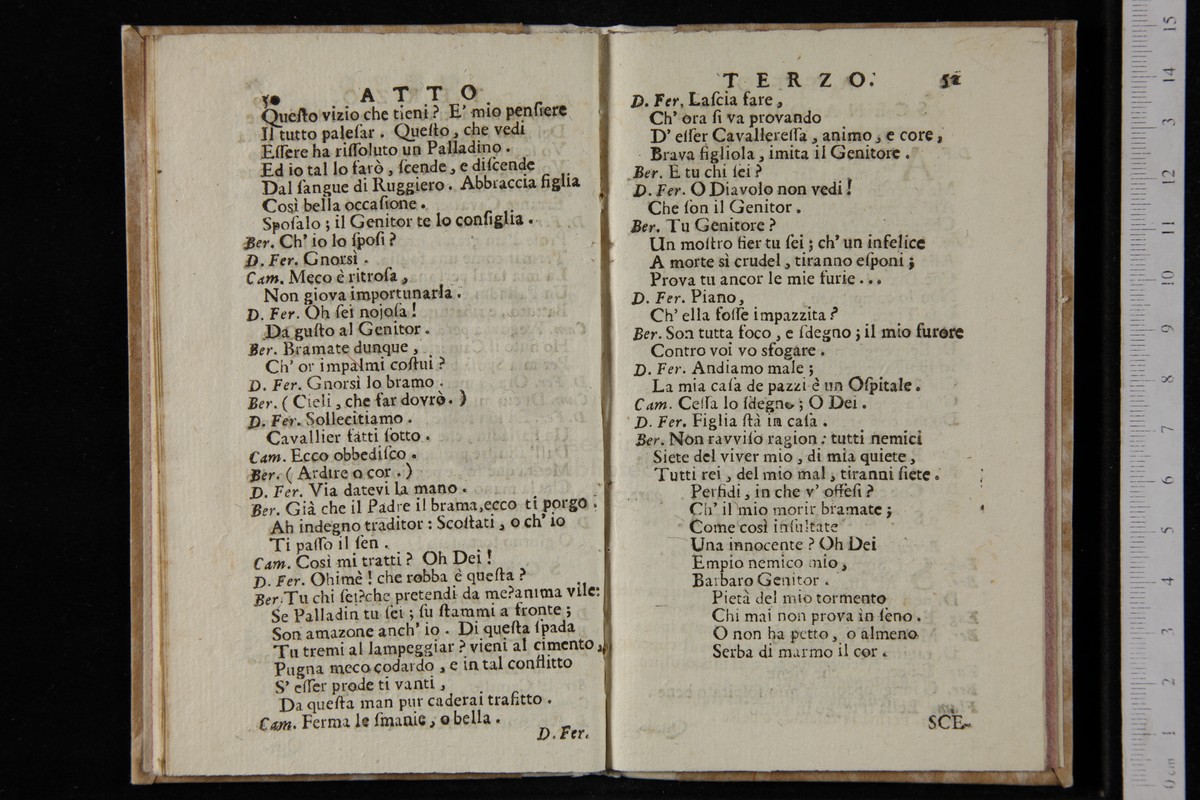 50 ATTO
Queſto vizio che tieni? E' mio penſiere
Il tutto paleſar. Queſto, che vedi
Eſſere ha riſſoluto un Palladino.
Ed io tal lo farò, ſcende, e diſcende
Dal ſangue di Ruggiero. Abbraccia figlia
Così bella occaſione.
Spoſalo; il Genitor te lo conſiglia.
Ber. Ch' io lo ſpoſi?
D. Fer. Gnorsì.
Cam. Meco è ritroſa,
Non giova importunarla.
D. Fer. Oh ſei nojoſa!
Da guſto al Genitor.
Ber. Bramate dunque,
Ch' or impalmi coſtui?
D. Fer. Gnorsì lo bramo.
Ber. (Cieli, che far dovrò.)
D. Fer. Sollecitiamo.
Cavallier fatti ſotto.
Cam. Ecco obbediſco.
Ber. (Ardire o cor.)
D. Fer. Via datevi la mano.
Ber. Già che il Padre il brama, ecco ti porgo.
Ah indegno traditor: Scoſtati, o ch' io
Ti paſſo il ſen.
Cam. Così mi tratti? Oh Dei!
D. Fer. Ohimè! che robba è queſta?
Ber. Tu chi ſei? che pretendi da me? anima vile:
Se Palladin tu ſei; ſu ſtammi a fronte;
Son amazone anch' io. Di queſta ſpada
Tu tremi al lampeggiar? vieni al cimento,
Pugna meco codardo, e in tal conflitto
S' eſſer prode ti vanti,
Da queſta man pur caderai trafitto.
Cam. Ferma le ſmanie, o bella.
D. Fer.
TERZO. 51
D. Fer. Laſcia fare,
Ch' ora ſi va provando
D' eſſer Cavallereſſa, animo, e core,
Brava figliola, imita il Genitore.
Ber. E tu chi ſei?
D. Fer. O Diavolo non vedi!
Che ſon il Genitor.
Ber. Tu Genitore?
Un moſtro fier tu ſei; ch' un infelice
A morte sì crudel, tiranno eſponi;
Prova tu ancor le mie furie...
D. Fer. Piano,
Ch' ella foſſe impazzita?
Ber. Son tutta foco, e ſdegno; il mio furore
Contro voi vo sfogare.
D. Fer. Andiamo male;
La mia caſa de pazzi è un Oſpitale.
Cam. Ceſſa lo ſdegno; O Dei.
D. Fer. Figlia ſtà in caſa.
Ber. Non ravviſo ragion: tutti nemici
Siete del viver mio, di mia quiete,
Tutti rei, del mio mal, tiranni ſiete.
Perfidi, in che v' offeſi?
Ch' il mio morir bramate;
Come così inſultate
Una innocente? Oh Dei
Empio nemico mio,
Barbaro Genitor.
Pietà del mio tormento
Chi mai non prova in ſeno.
O non ha petto, o almeno
Serba di marmo il cor.
SCE-
0 cm 1 2 3 4 5 6 7 8 9 10 11 12 13 14 15